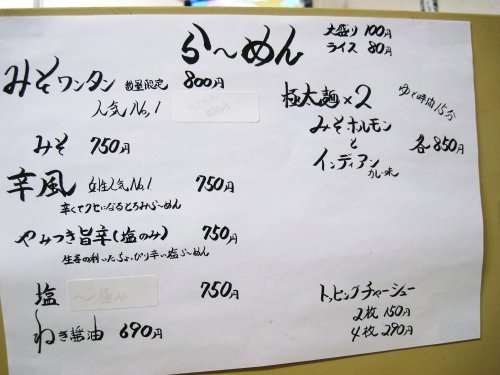 らーめん
大盛り 100円
ライス 80円
みそワンタン 数量限定 800円
人気No,1
みそ 750円
辛風 女性人気No.1 750円
辛くてクセになるとろみらーめん
やみつき旨辛(塩のみ) 750円
生姜の利いたちょっぴり辛い塩らーめん
塩 750円
ねぎ醤油 690円
極太麺×2 ゆで時間15分
みそホルモン
と
インディアン カレー味
各850円
トッピングチャーシュー
2枚 150円
4枚 290円